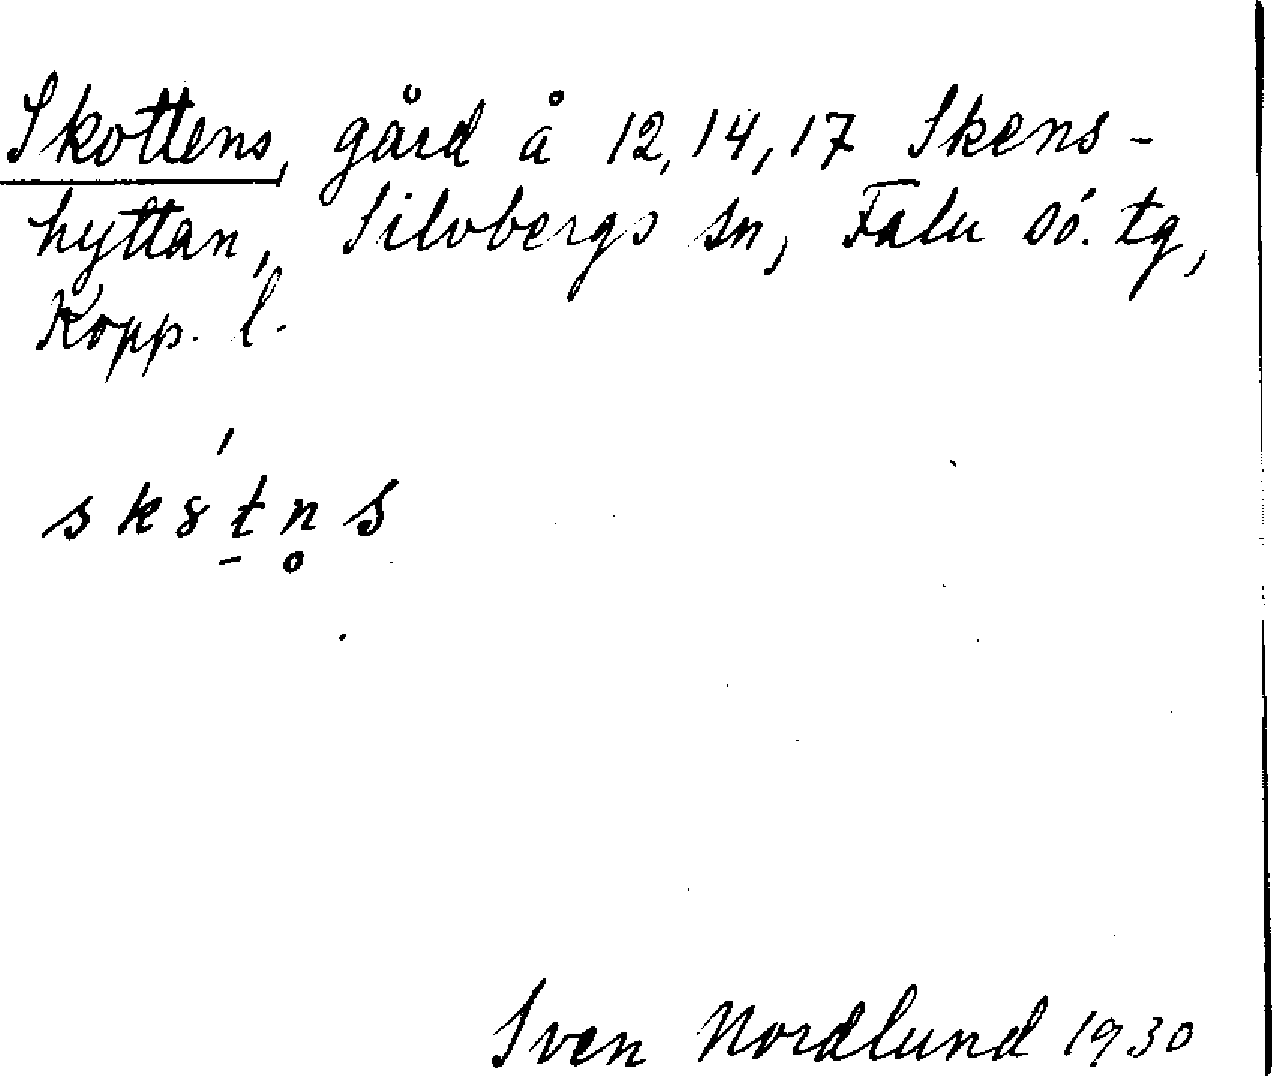 Skottens, gård å 12, 14, 17 Skens-
hyttan, Silvbergs sn, Falu sö. tg,
Kopp. l.
sk8́t̠n̥s
Sven Nordlund 1930